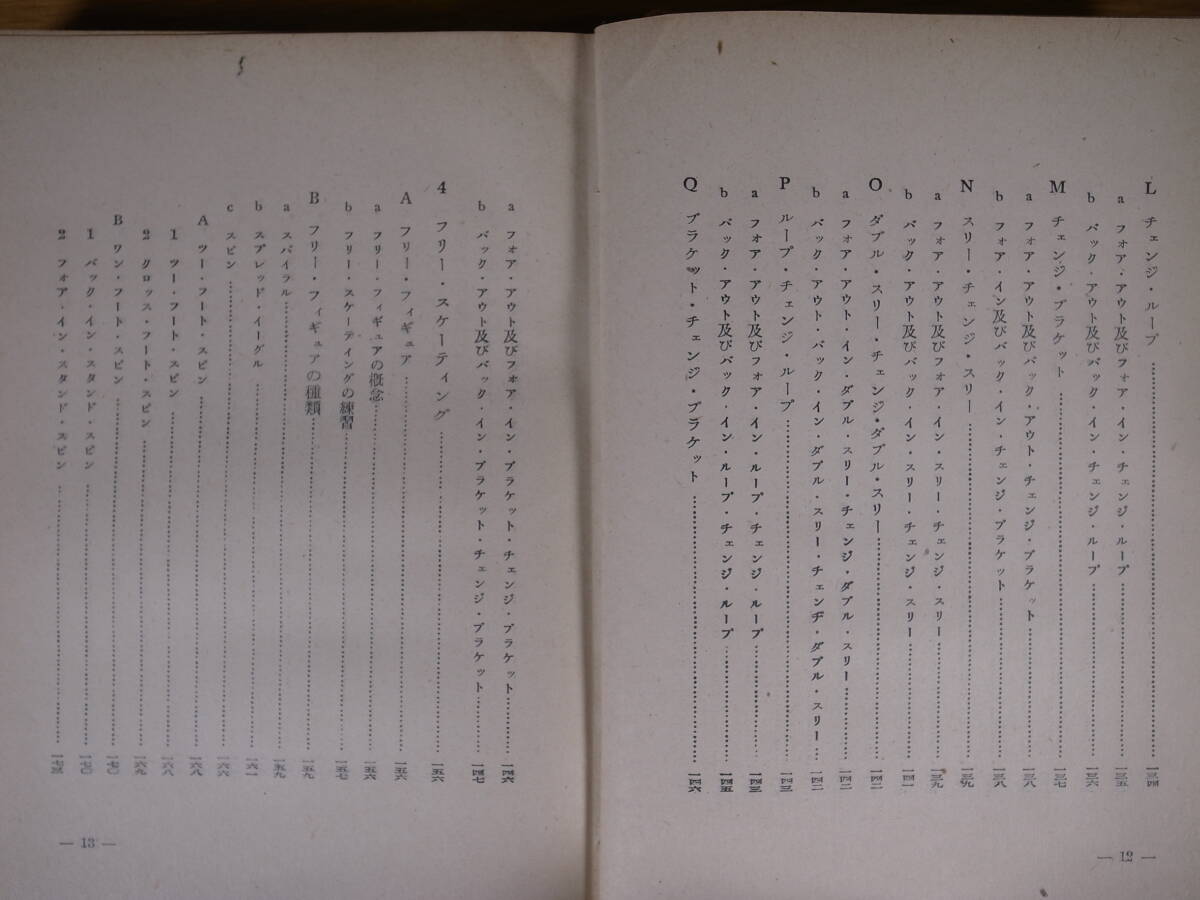 L チェンジ・ループ……一三四
a フォア・アウト及びフォア・イン・チェンジ・ループ……一三五
b バック・アウト及びバック・イン・チェンジ・ループ……一三六
M チェンジ・ブラケット……一三七
a フォア・アウト及びバック・アウト・チェンジ・ブラケット……一三八
b フォア・イン及びバック・イン・チェンジ・ブラケット……一三八
N スリー・チェンジ・スリー……一三九
a フォア・アウト及びフォア・イン・スリー・チェンジ・スリー……一三九
b バック・アウト及びバック・イン・スリー・チェンジ・スリー……一四一
O ダブル・スリー・チェンジ・ダブル・スリー……一四二
a フォア・アウト・イン・ダブル・スリー・チェンジ・ダブル・スリー……一四二
b バック・アウト・バック・イン・ダブル・スリー・チェンヂ・ダブル・スリー……一四二
P ループ・チェンジ・ループ……一四三
a フォア・アウト及びフォア・イン・ループ・チェンジ・ループ……一四三
b バック・アウト及びバック・イン・ループ・チェンジ・ループ……一四五
Q ブラケット・チェンジ・ブラケット……一四六
— 12 —
a フォア・アウト及びフォア・イン・ブラケット・チェンジ・ブラケット……一四六
b バック・アウト及びバック・イン・ブラケット・チェンジ・ブラケット……一四七
4 フリー・スケーティング……一五六
A フリー・フィギュア……一五六
a フリー・フィギュアの概念……一五六
b フリー・スケーティングの練習……一五七
B フリー・フィギュアの種類……一五九
a スパイラル……一五九
b スプレッド・イーグル……一六一
c スピン……一六六
A ツー・フート・スピン……一六八
1 ツー・フート・スピン……一六八
2 クロッス・フート・スピン……一六九
B ワン・フート・スピン……一七〇
1 バック・イン・スタンド・スピン……一七〇
2 フォア・イン・スタンド・スピン……一七三
— 13 —